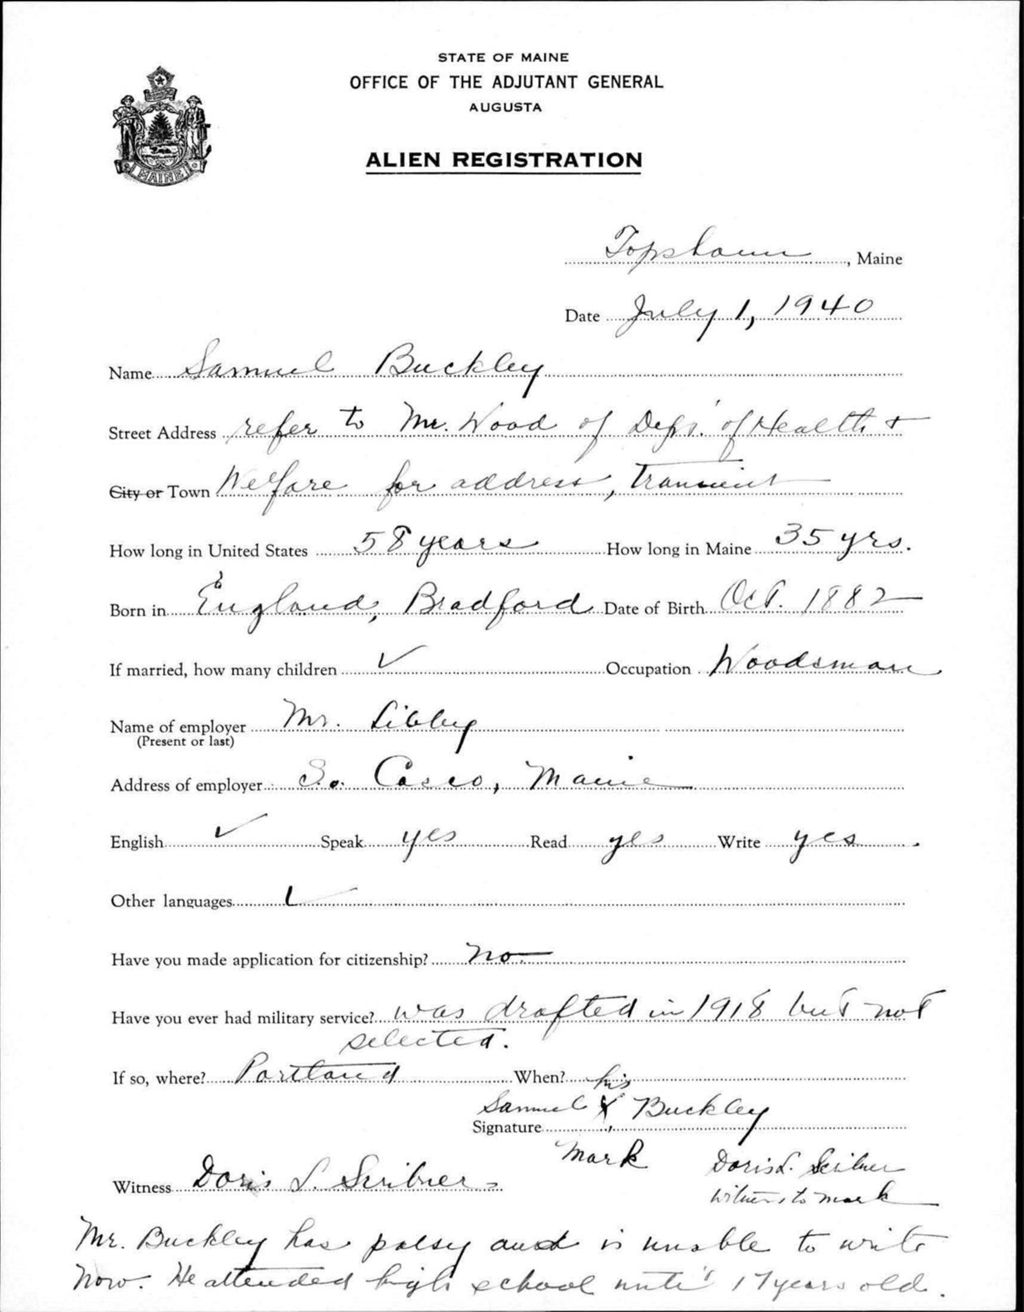 STATE OF MAINE
OFFICE OF THE ADJUTANT GENERAL
AUGUSTA
ALIEN REGISTRATION
MAINE
Topsham, Maine
Date July 1, 1940
Name Samuel Buckley
Street Address refer to Mr. Wood of Dept. of Health +
City or Town Welfare for address, transient
How long in United States 58 years How long in Maine 35 yrs.
Born in England, Bradford Date of Birth Oct. 1882
If married, how many children ✓ Occupation Woodsman
Name of employer Mr. Libby
(Present or last)
Address of employer So. Casco, Maine
English ✓ Speak yes Read yes Write yes.
Other languages ✓
Have you made application for citizenship? no
Have you ever had military service? was drafted in 1918 but not
selected.
If so, where? Portland When?
his
Samuel X Buckley
Signature
mark
Doris L. Scribner
Witness Doris L. Scribner
witness to mark
Mr. Buckley has palsy and is unable to write
now. He attended high school until 17 years old.